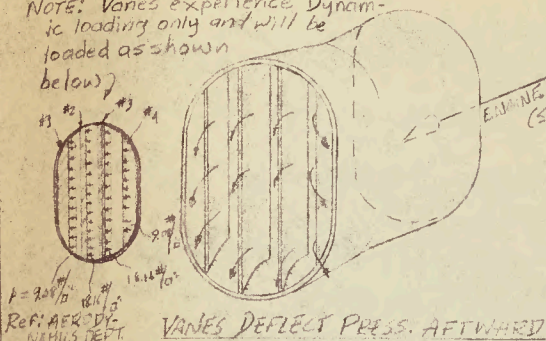 NOTE: Vanes experience Dynam-
ic loading only and will be
loaded as shown
below
#2 #3
#3 #4
ENGINE
P = 9.08#/□"
18.16#/□"
Ref: AERODY-
NAMICS DEPT.
VANES DEFLECT PRESS. AFTWARD